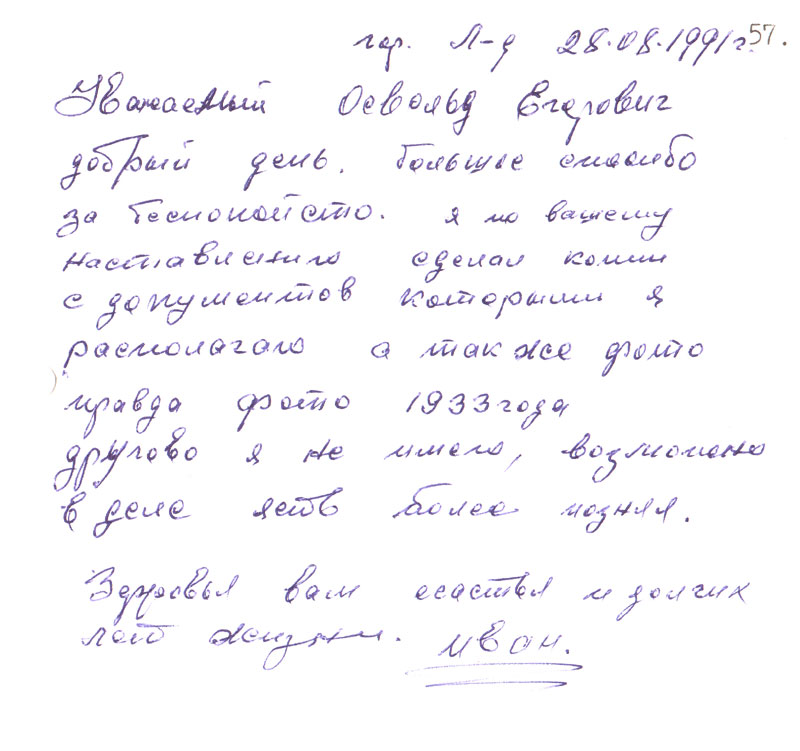 гор. Л-д 28.08.1991г. 57.
Уважаемый Освольд Егорович
добрый день. Большое спасибо
за беспокойсто. я по вашему
наставлению сделал копии
с документов которыми я
располагаю а так же фото
правда фото 1933 года
другово я не имею, возможно
в деле яств более позняя.
Здоровья вам счастья и долгих
лет жизни. Иван.